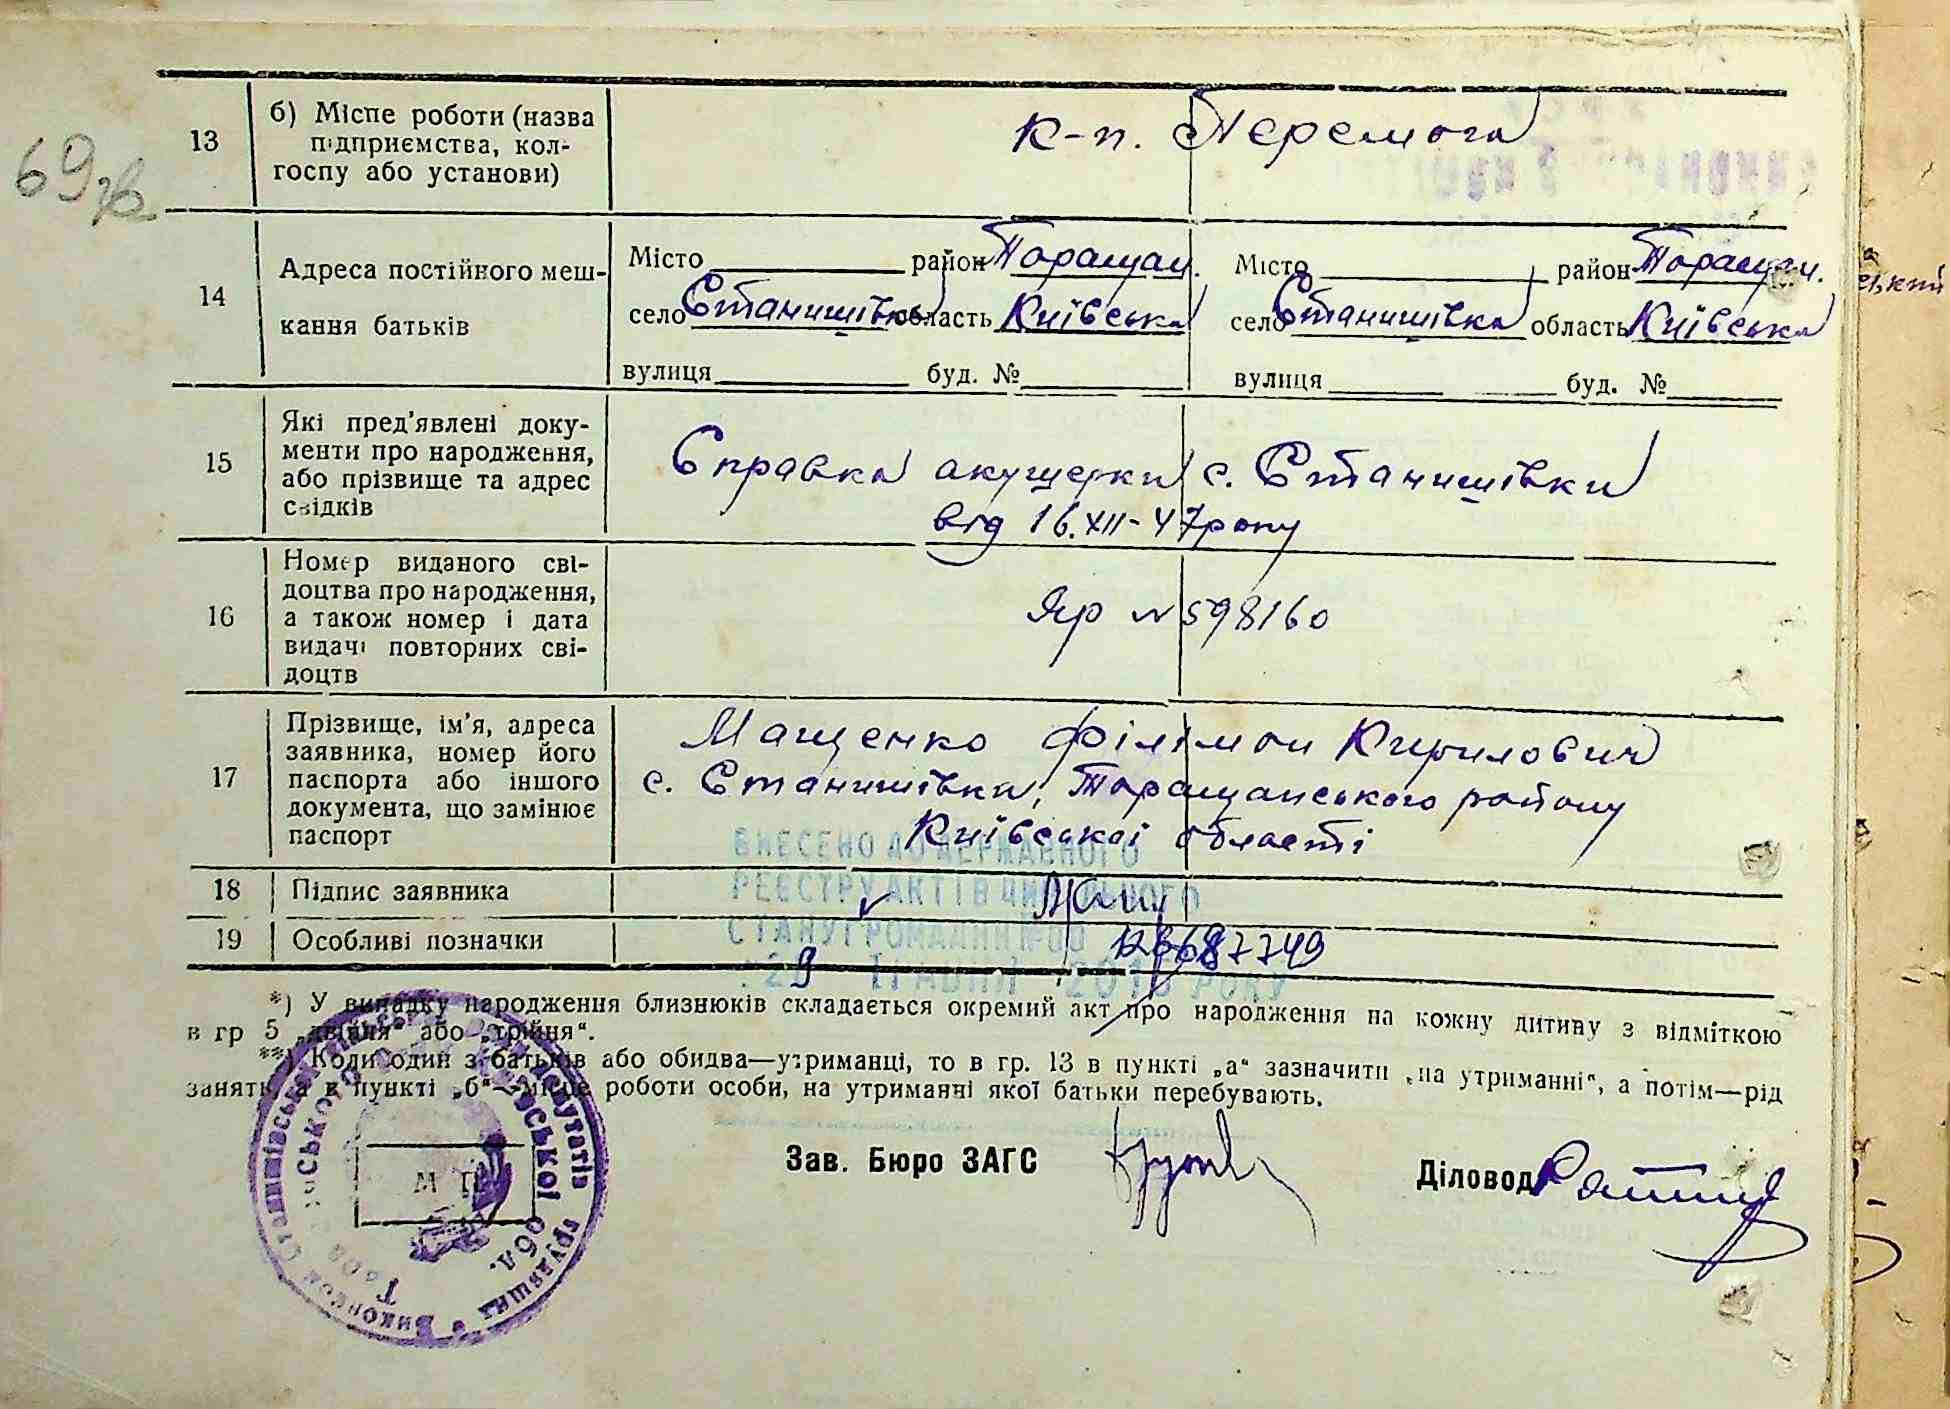 69 зв.
13
б) Місце роботи (назва
підприємства, кол-
госпу або установи)
к-п. Перемога
14
Адреса постійного меш-
кання батьків
Місто район Таращан.
село Станишівка область Київська
вулиця буд. №
Місто район Таращан.
село Станишівка область Київська
вулиця буд. №
15
Які пред'явлені доку-
менти про народження,
або прізвище та адрес
свідків
Справка акушерки с. Станишівки
від 16.XII-47 року
16
Номер виданого сві-
доцтва про народження,
а також номер і дата
видачі повторних сві-
доцтв
Яр № 598160
17
Прізвище, ім'я, адреса
заявника, номер його
паспорта або іншого
документа, що замінює
паспорт
Мащенко Філімон Кирилович
с. Станишівки, Таращанського району
Київської області
ВНЕСЕНО ДО ДЕРЖАВНОГО
РЕЄСТРУ АКТІВ ЦИВІЛЬНОГО
СТАНУ ГРОМАДЯН
18
Підпис заявника
19
Особливі позначки
*) У випадку народження близнюків складається окремий акт про народження на кожну дитину з відміткою
в гр 5 „двійня“ або „трійня“.
**) Коли один з батьків або обидва—утриманці, то в гр. 13 в пункті „а“ зазначити „на утриманні“, а потім—рід
занять, а в пункті „б“—місце роботи особи, на утриманні якої батьки перебувають.
М П
Зав. Бюро ЗАГС
Діловод